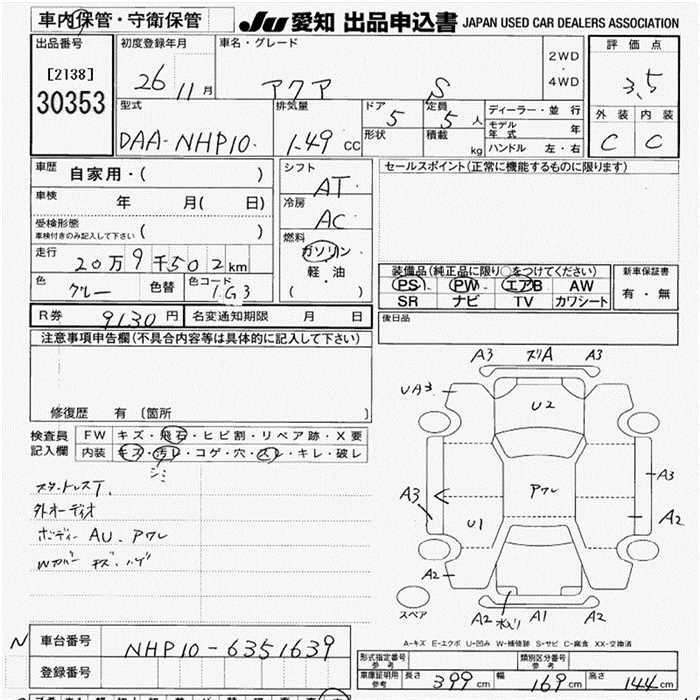 車内保管・守衛保管
JU 愛知 出品申込書 JAPAN USED CAR DEALERS ASSOCIATION
出品番号
[2138]
30353
初度登録年月
26 11月
車名・グレード
アクア S
2WD
・
4WD
評価点
3.5
外装 内装
C C
型式
DAA-NHP10.
排気量
1.49 cc
ドア 5
形状
定員 5 人
積載 kg
ディーラー・並行
モデル年式 年
ハンドル 左・右
車歴 自家用・( )
車検 年 月( 日)
受検形態
車検付きのみ記入して下さい ( )
走行
20万9千502km
色 グレー 色替 色コード 1G3
シフト
AT
冷房
AC
燃料
ガソリン
軽・油
( )
セールスポイント(正常に機能するものに限ります)
装備品(純正品に限り○をつけてください)
PS PW エアB AW
SR ナビ TV カワシート
新車保証書
有・無
R券 9130円 名変通知期限 月 日
後日品
注意事項申告欄(不具合内容等は具体的に記入して下さい)
修復歴 有 〔箇所 〕
検査員
記入欄
FW キズ・飛石・ヒビ割・リペア跡・X要
内装 キズ・汚レ・コゲ・穴・スレ・キレ・破レ
シミ
スタートレスT.
外オーディオ
ボディー AU. アワレ
Wカバー キズ.ハゲ
A3 スリA A3
UA3
U2
A3
アワレ
A3
U1
A2
A2
スペア
A2 水バリ A1 A2
A-キズ E-エクボ U-凹み W-補修跡 S-サビ C-腐食 XX-交換済
N
車台番号 NHP10-6351639
登録番号
形式指定番号
参考
類別区分番号
参考
車庫証明用
参考
長さ 399cm 幅 169cm 高さ 144cm